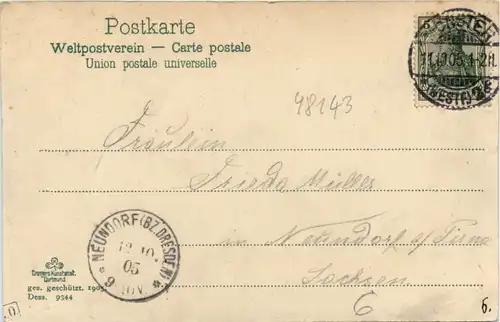 Postkarte
Weltpostverein — Carte postale
Union postale universelle
11.10.05.1-2N.
(WESTF)
48143
Fräulein
Frieda Müller
in Neundorf a/ Pirna
Sachsen
NEUNDORF (BZ. DRESDEN)
12.10.
05
Cramers Kunstanst.
Dortmund
ges. geschützt. 190
Dess. 9344
6
6.